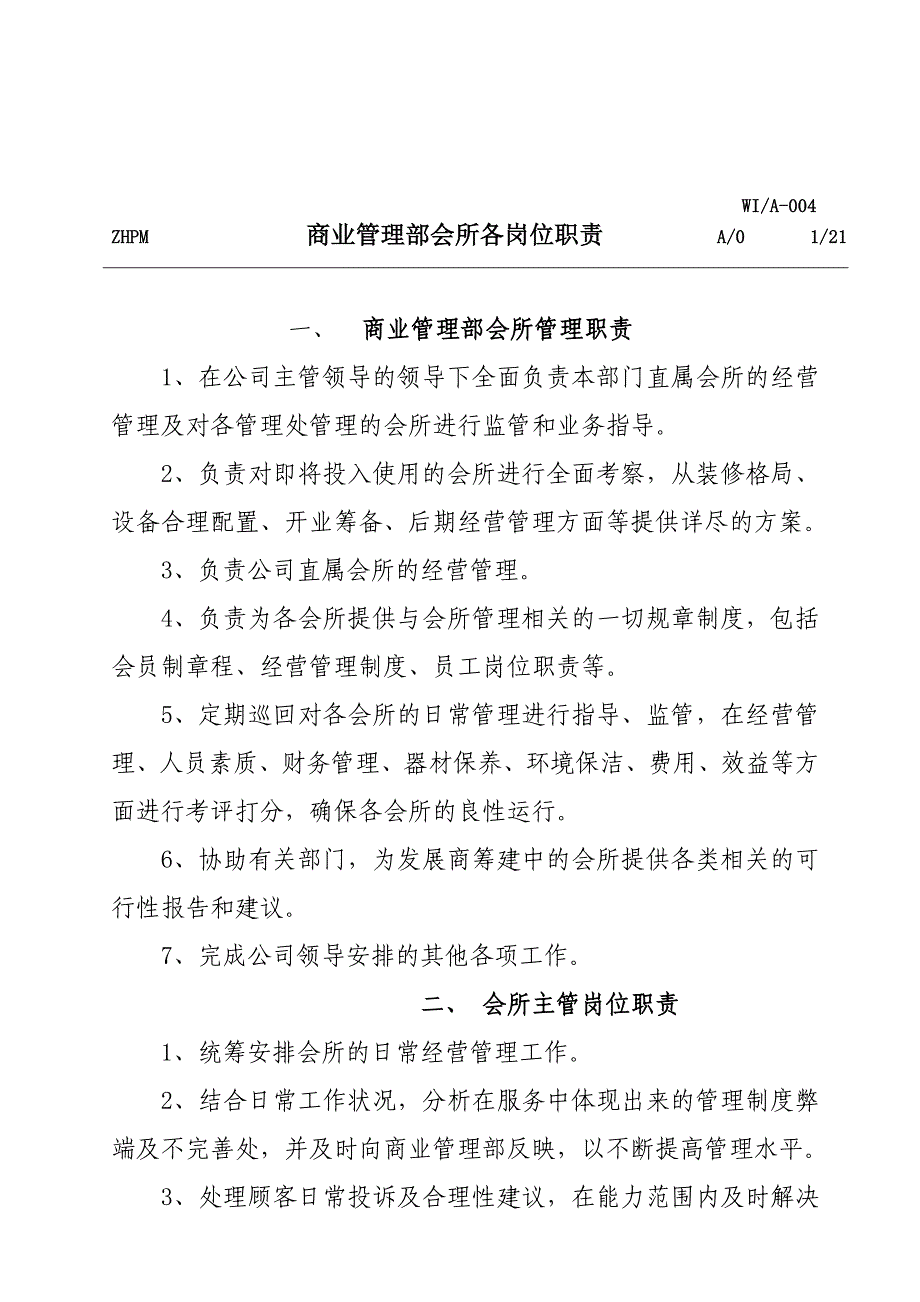 WI/A-004
ZHPM 商业管理部会所各岗位职责 A/0 1/21
一、 商业管理部会所管理职责
1、在公司主管领导的领导下全面负责本部门直属会所的经营
管理及对各管理处管理的会所进行监管和业务指导。
2、负责对即将投入使用的会所进行全面考察，从装修格局、
设备合理配置、开业筹备、后期经营管理方面等提供详尽的方案。
3、负责公司直属会所的经营管理。
4、负责为各会所提供与会所管理相关的一切规章制度，包括
会员制章程、经营管理制度、员工岗位职责等。
5、定期巡回对各会所的日常管理进行指导、监管，在经营管
理、人员素质、财务管理、器材保养、环境保洁、费用、效益等方
面进行考评打分，确保各会所的良性运行。
6、协助有关部门，为发展商筹建中的会所提供各类相关的可
行性报告和建议。
7、完成公司领导安排的其他各项工作。
二、 会所主管岗位职责
1、统筹安排会所的日常经营管理工作。
2、结合日常工作状况，分析在服务中体现出来的管理制度弊
端及不完善处，并及时向商业管理部反映，以不断提高管理水平。
3、处理顾客日常投诉及合理性建议，在能力范围内及时解决